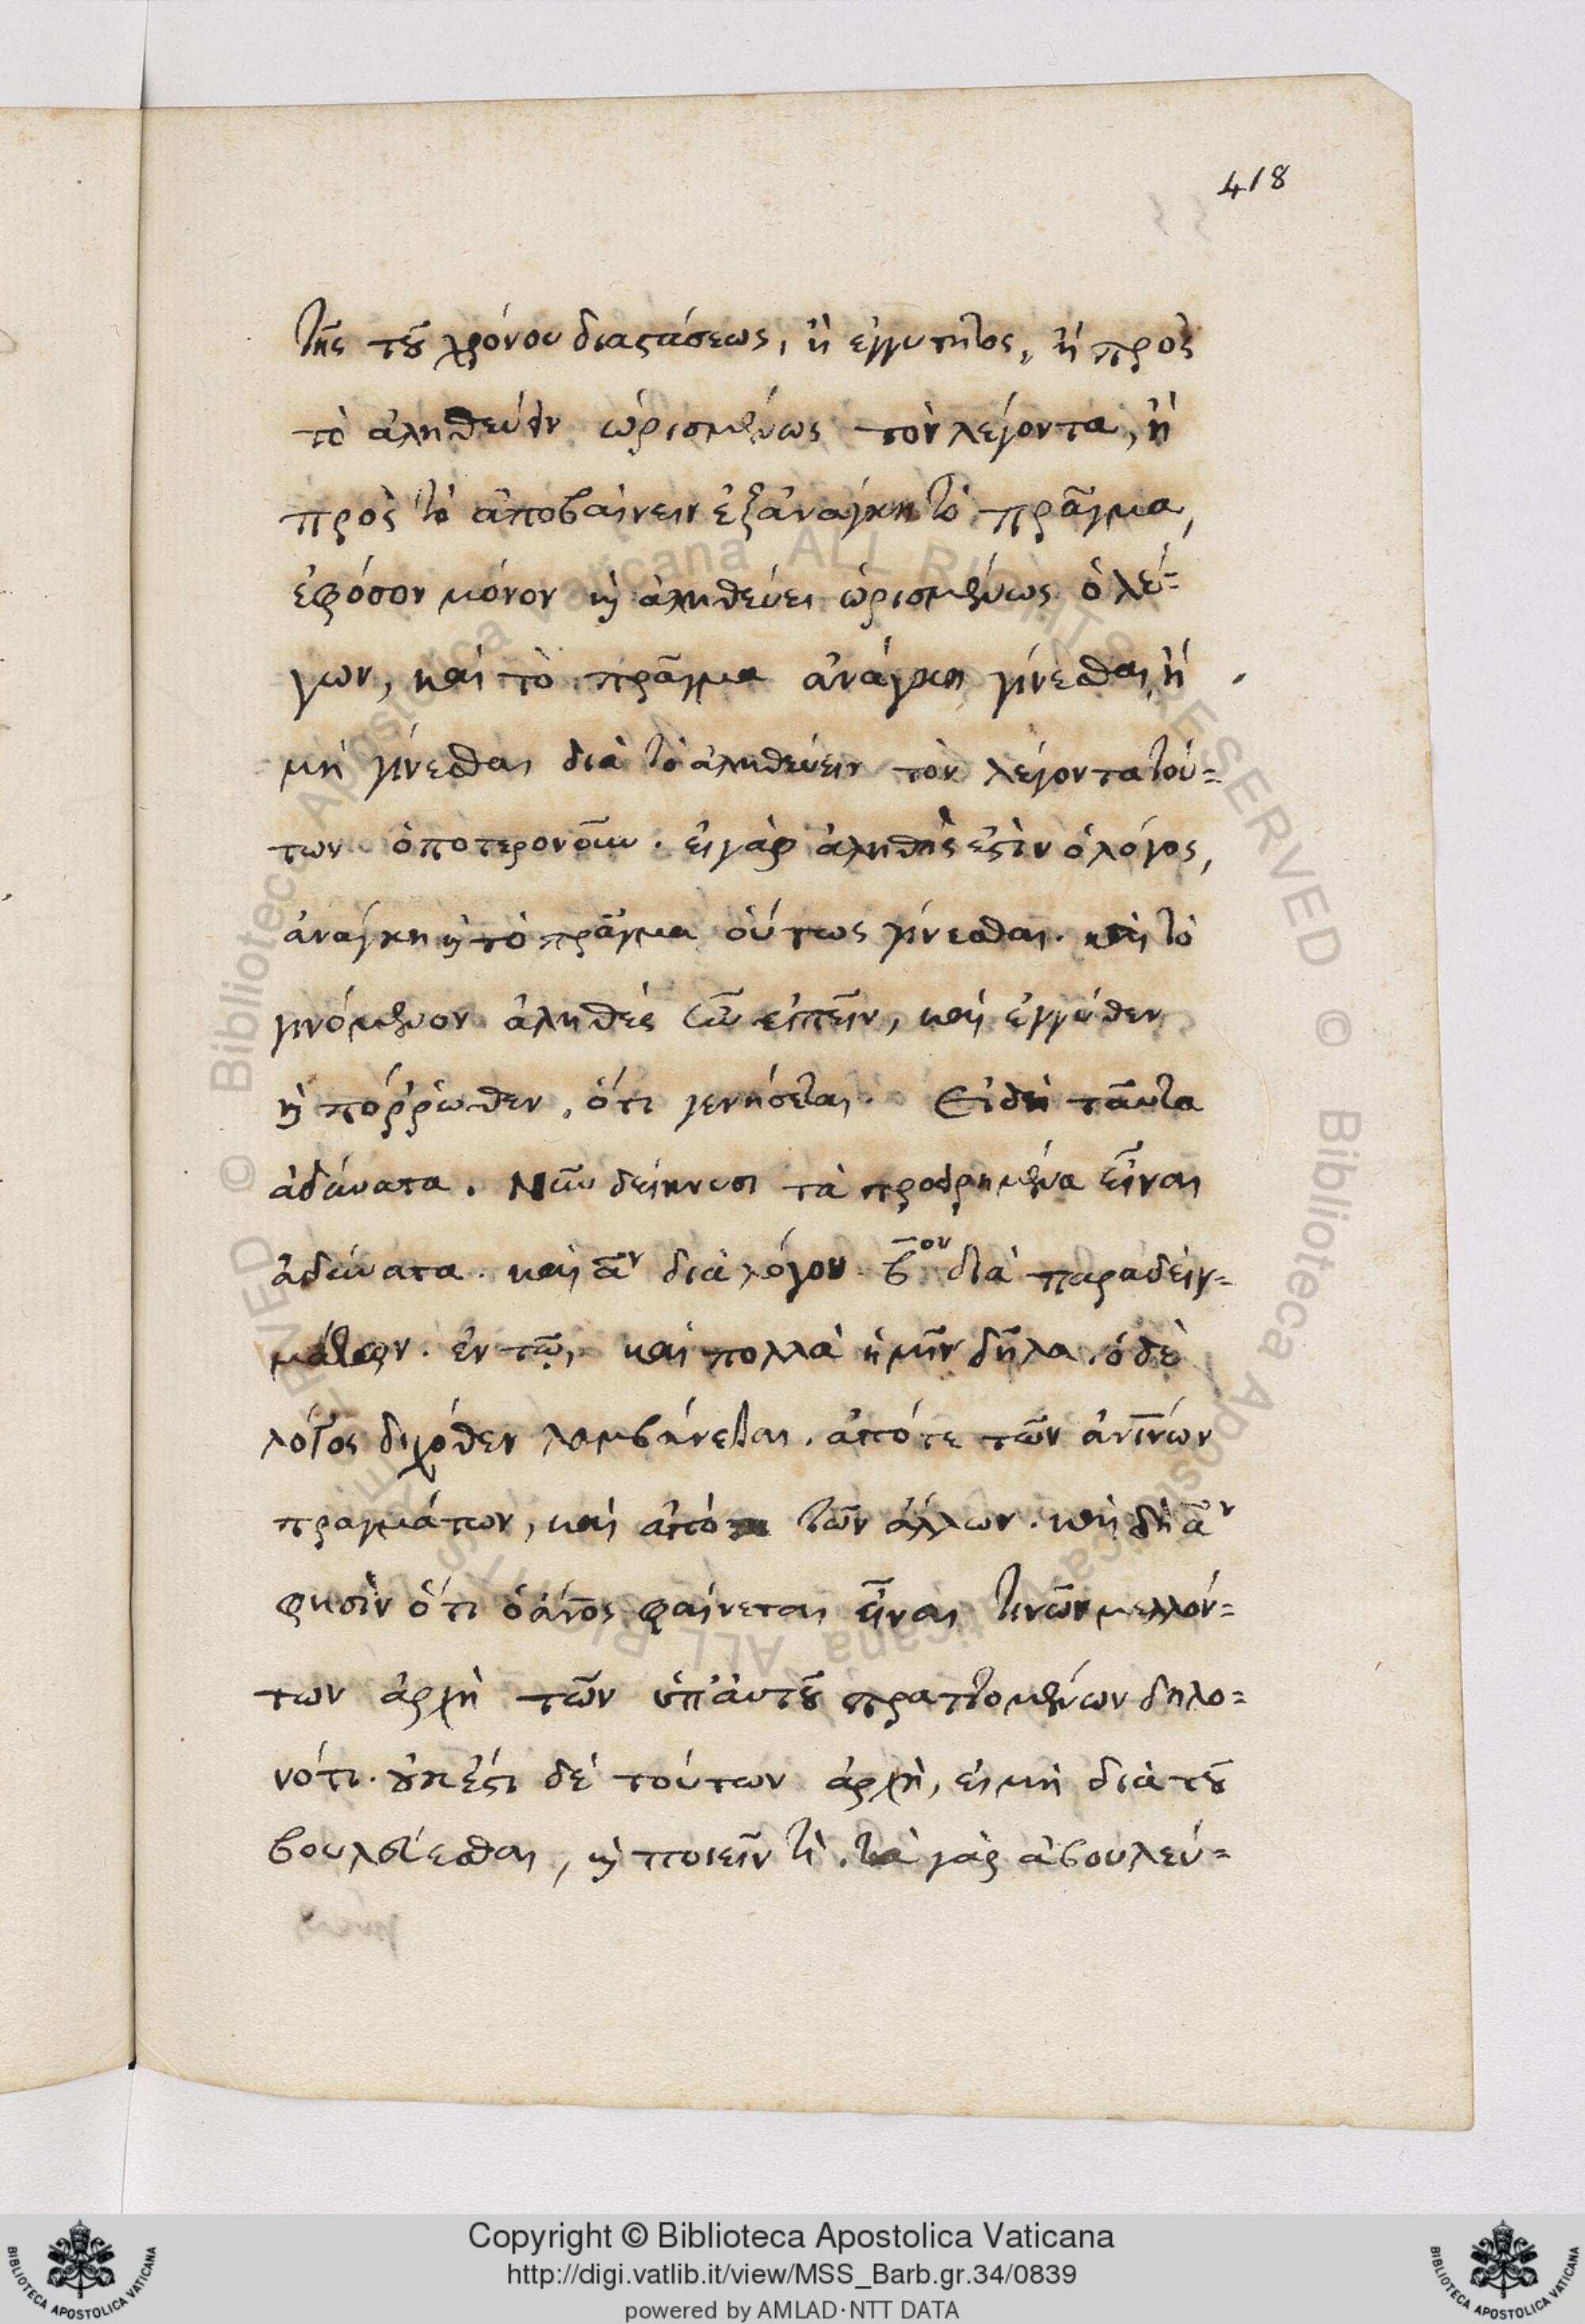 418
τῆς τοῦ χρόνου διαστάσεως, ἢ ἐγγυτητος, ἢ πρὸς
τὸ ἀληθεύειν ὡρισμένως τὸν λέγοντα, ἢ
πρὸς τὸ ἀποβαίνειν ἐξανάγκη τὸ πρᾶγμα,
ἐφόσον μόνον καὶ ἀληθεύει ὡρισμένως ὁ λέ=
γων, καὶ τὸ πρᾶγμα ἀνάγκη γίνεσθαι, ἢ
μὴ γίνεσθαι διὰ τὸ ἀληθεύειν τὸν λέγοντα τού=
των ὁποτερονοῦν. εἰ γὰρ ἀληθής ἐστιν ὁ λόγος,
ἀνάγκη καὶ τὸ πρᾶγμα οὕτως γίνεσθαι. καὶ τὸ
γινόμενον ἀληθὲς ἦν εἰπεῖν, καὶ ἐγγύθεν
καὶ πόῤῥωθεν, ὅτι γενήσεται. Εἰ δὴ ταῦτα
ἀδύνατα. Νῦν δείκνυσι τὰ προειρημένα εἶναι
ἀδύνατα. καὶ α̅ν διὰ λόγου. β̅ον διὰ παραδειγ=
μάτων. ἐν τῷ, καὶ πολλὰ ἡμῖν δῆλα. ὁ δὲ
λόγος διχόθεν λαμβάνεται. ἀπό τε τῶν ἀνίνων
πραγμάτων, καὶ ἀπὸ τῶν ἄλλων. καὶ δὴ α̅ν
φησὶν ὅτι ὁ ἄνος φαίνεται εἶναι τινῶν μελλόν=
των ἀρχὴ τῶν ὑπ' αὐτοῦ πραττομένων δηλο=
νότι. οὐκ ἔστι δὲ τούτων ἀρχὴ, εἰ μὴ διὰ τοῦ
βουλεύεσθαι, καὶ ποιεῖν τὶ. τὰ γὰρ ἀβουλεύ=
Copyright © Biblioteca Apostolica Vaticana
http://digi.vatlib.it/view/MSS_Barb.gr.34/0839
powered by AMLAD·NTT DATA
BIBLIOTECA APOSTOLICA VATICANA
BIBLIOTECA APOSTOLICA VATICANA
© Biblioteca Apostolica Vaticana ALL RIGHTS RESERVED © Biblioteca Apostolica Vaticana ALL RIGHTS RESERVED